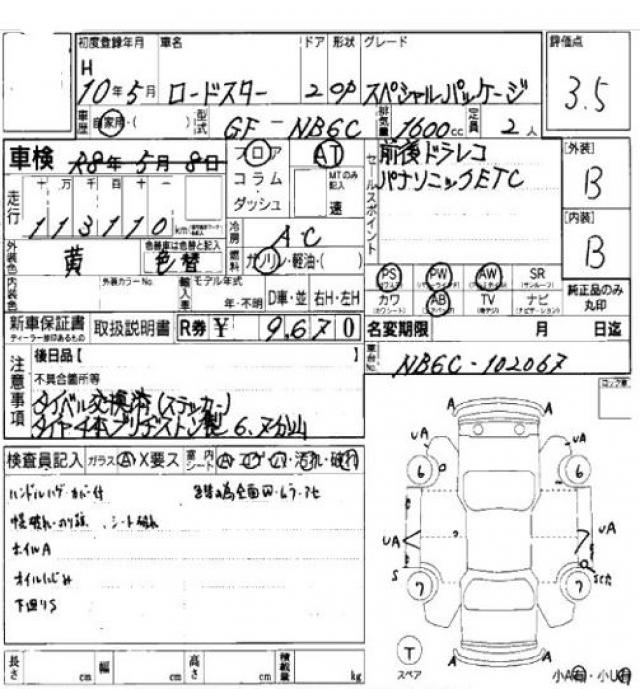 初度登録年月 車名 ドア 形状 グレード 評価点
H
10年5月 ロードスター 2 OP スペシャルパッケージ 3.5
車歴 自家用・( ) 型式 GF-NB6C 排気量 1600cc 定員 2人
車検 R8年5月8日 フロア AT セールスポイント 前後ドラレコ [外装]
コラム MTのみ記入 パナソニックETC B
ダッシュ 速
走行 十 万 千 百 十 一
113110 km 冷房 A・C [内装]
外装色 黄 色替車は色替と記入 色替 燃料 ガソリン・軽油・( ) B
内装色 外装カラーNo. 輸入車 モデル年式 年・不明 D車・並 右H・左H
PS PW AW SR (サンルーフ)
カワ AB TV ナビ 純正品のみ丸印
新車保証書 取扱説明書 R券 ¥ 9,670 名変期限 月 日迄
ディーラー捺印あるもの
注意事項 後日品【 】 車台No. NB6C-102067
不具合箇所等
タイベル交換済(ステッカー)
タイヤ4本ブリヂストン製 6、7分山
検査員記入 ガラス A X要ス 室内シート A・コゲ・ハ・汚れ・破れ
ハンドルハゲ・カバー付
幌破れ シート破れ
ホイルA
オイルにじみ
下廻りS
A A
UA UA
6 6
UA UA
S
7 7
T
スペア
A A
長さ cm 幅 cm 高さ cm 積載量 kg 小A有・小U有